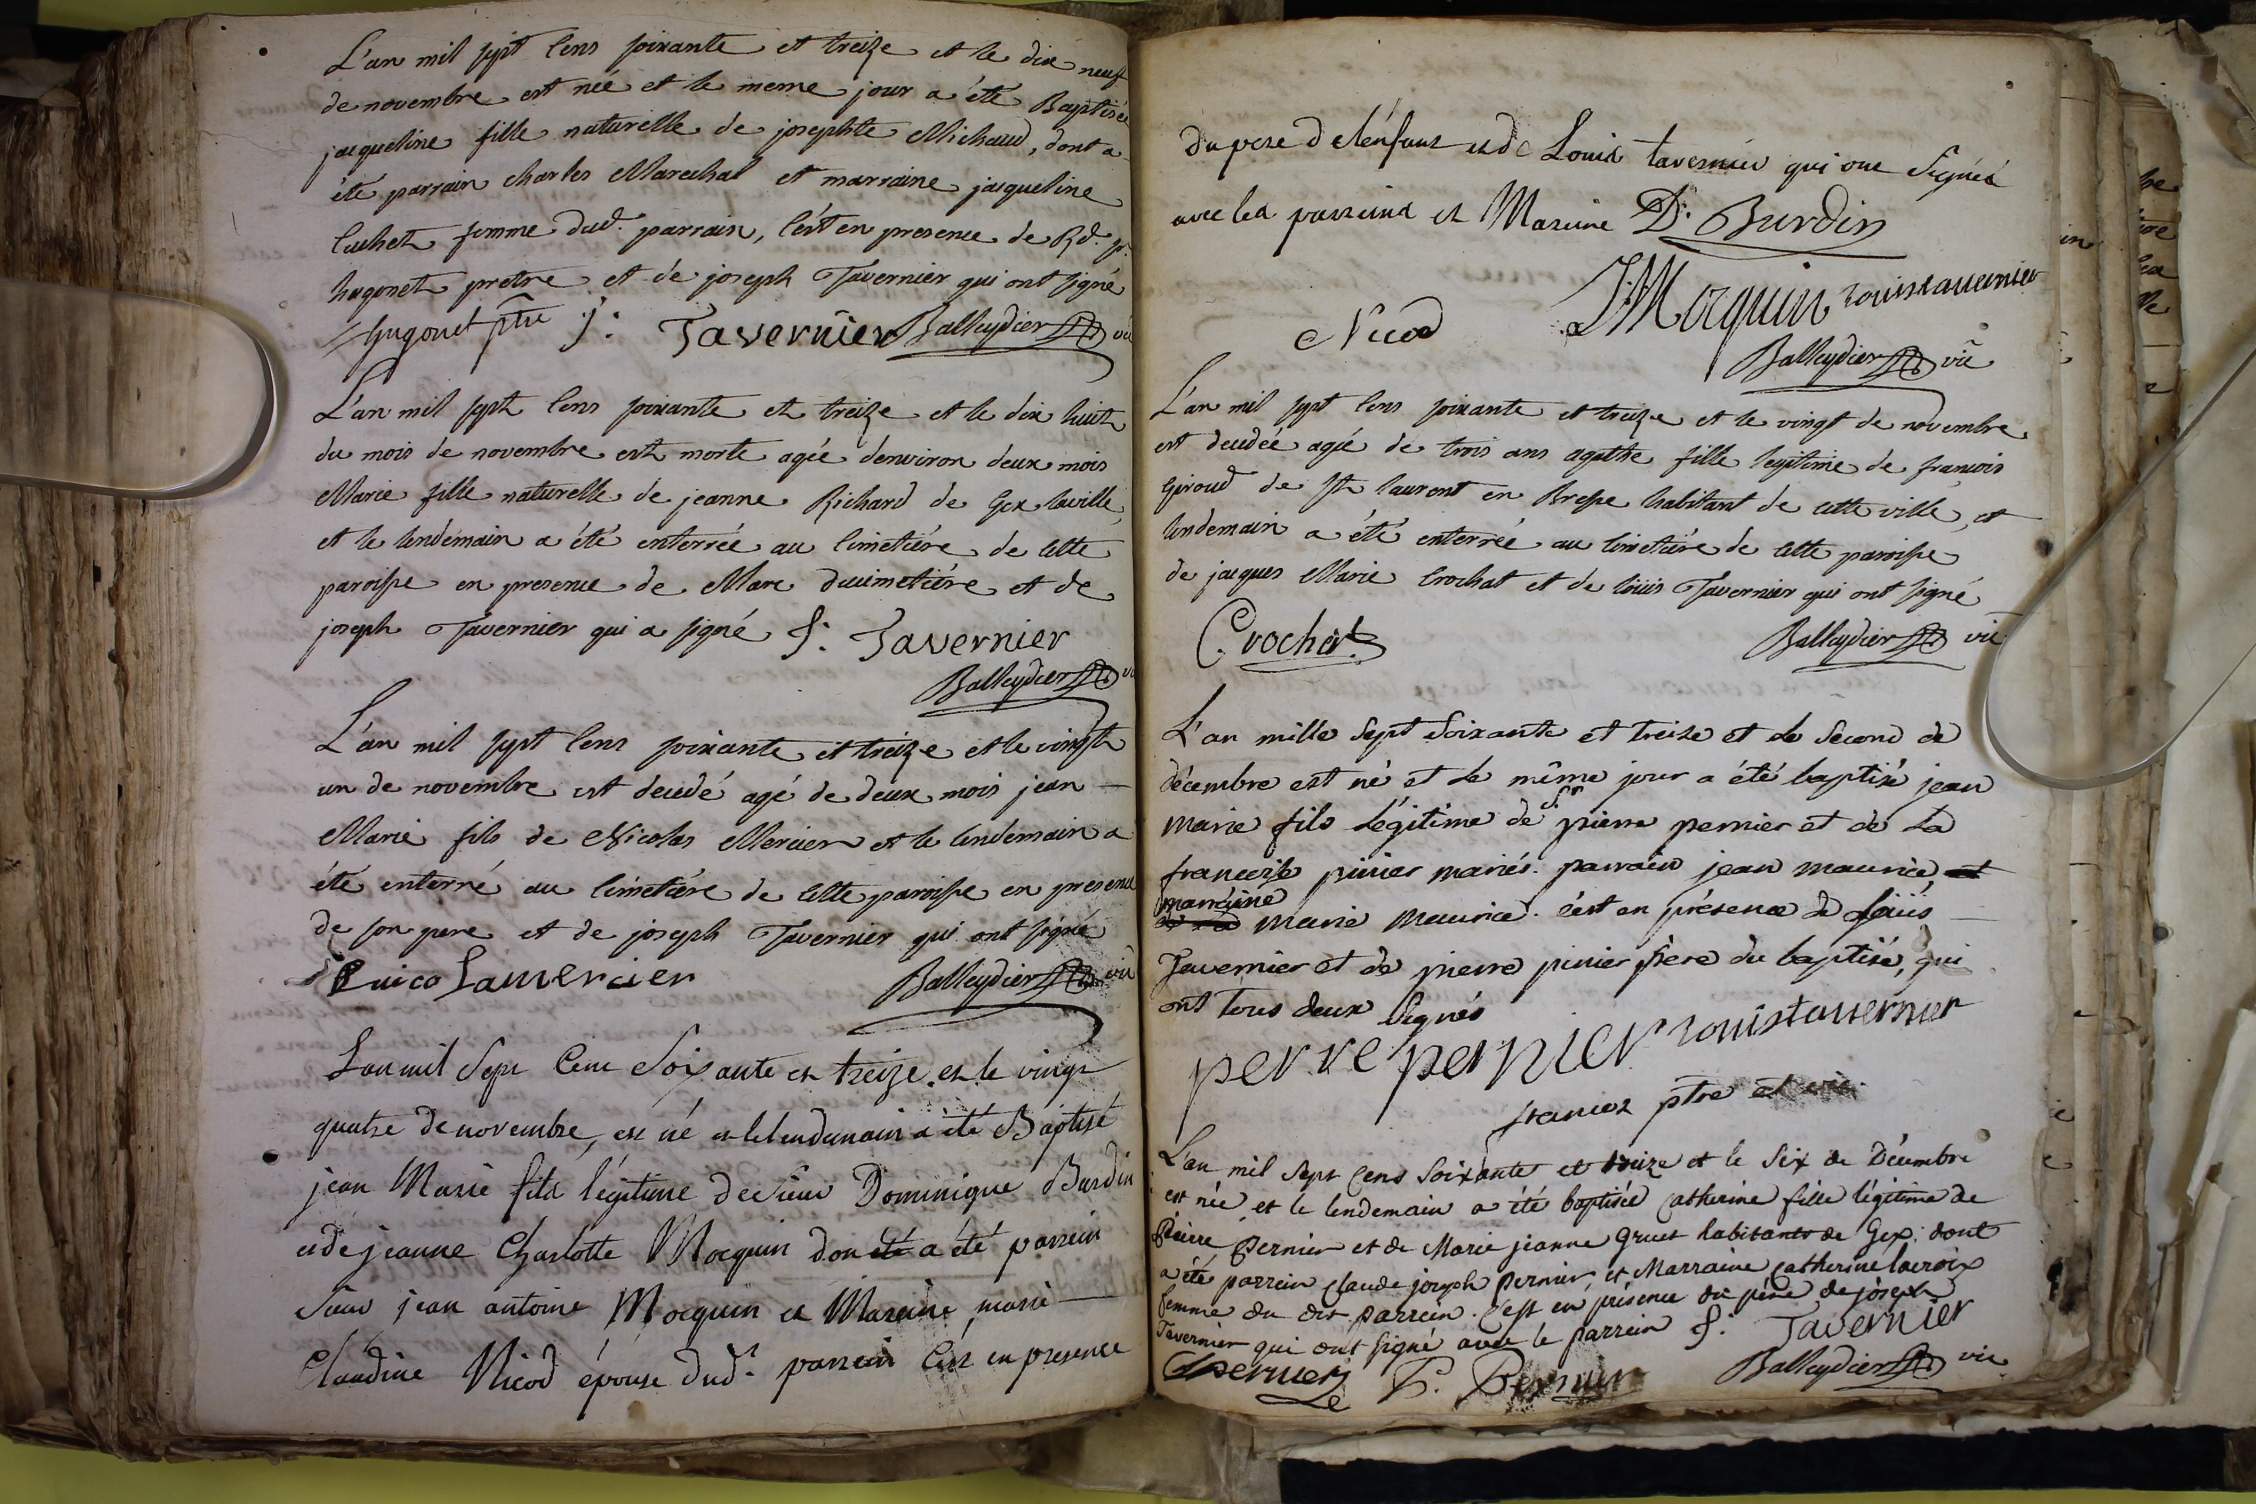 L'an mil sept cens soixante et treize et le dix neuf
de novembre est née et le meme jour a été Baptisée
jacqueline fille naturelle de josephte Michaud, dont a
été parrain charles Marechal et marraine jacqueline
femme dud. parrain, c'est en presence de Rd. p.
hugonet pretre et de joseph Tavernier qui ont signé
hugonet ptre j: Tavernier Balleydier vic
L'an mil sept cens soixante et treize et le dix huit
du mois de novembre est morte agée d'environ deux mois
Marie fille naturelle de jeanne Richard de Gex laville,
et le lendemain a été enterrée au cimetiére de cette
paroisse en presence de Marc Ducimetiére et de
joseph Tavernier qui a signé j: Tavernier
Balleydier vic
L'an mil sept cens soixante et treize et le vingt
un de novembre est decedé agé de deux mois jean
Marie fils de Nicolas Mercier et le lendemain a
été enterré au cimetiére de cette paroisse en presence
de son pere et de joseph Tavernier qui ont signé
nicolamercier Balleydier vic
L'an mil Sept Cent Soixante et treize et le vingt
quatre de novembre, est né et le lendemain a été Baptisé
jean Marie fils légitime de sieur Dominique Burdin
et de jeanne Charlotte Mocquin dont été a été parrein
sieur jean antoine Mocquin et Mareine marie
Claudine Nicod épouse dud. parrein C'est en presence
du pere de lénfant et de Louis tavernier qui ont signés
avec les parreins et Mareine D. Burdin
Nicod J: Mocquin Louis tavernier
Balleydier vic
L'an mil sept cens soixante et treize et le vingt de novembre
est decedée agée de trois ans agathe fille legitime de francois
Giroud de St. laurent en Bresse habitant de cette ville, et
lendemain a été enterrée au cimetiére de cette paroisse
de jacques Marie Crochat et de loüis Tavernier qui ont signé
Crochat Balleydier vic
L'an mille sept soixante et treize et le second de
décembre est né et le même jour a été baptisé jean
marie fils légitime de Sr pierre pernier et de La
mariés. parrain jean maurice et
marraine
marie maurice. c'est en présence de loüis
Tavernier et de pierre frère du baptisé, qui
ont tous deux signés
perre pernier Louis tavernier
ptre et vic.
L'an mil Sept Cens Soixante et treize et le Six de Décembre
est née et le lendemain a été baptisée Catherine fille légitime de
Pierre Pernier et de Marie jeanne Gruet habitants de Gex: dont
a été parrein Claude joseph Pernier, et Marraine Catherine lacroix
femme du dit parrein. C'est en présence du pére de joseph
Tavernier qui ont signé avec le parrein j: Tavernier
Pernier P. Pernier Balleydier vic